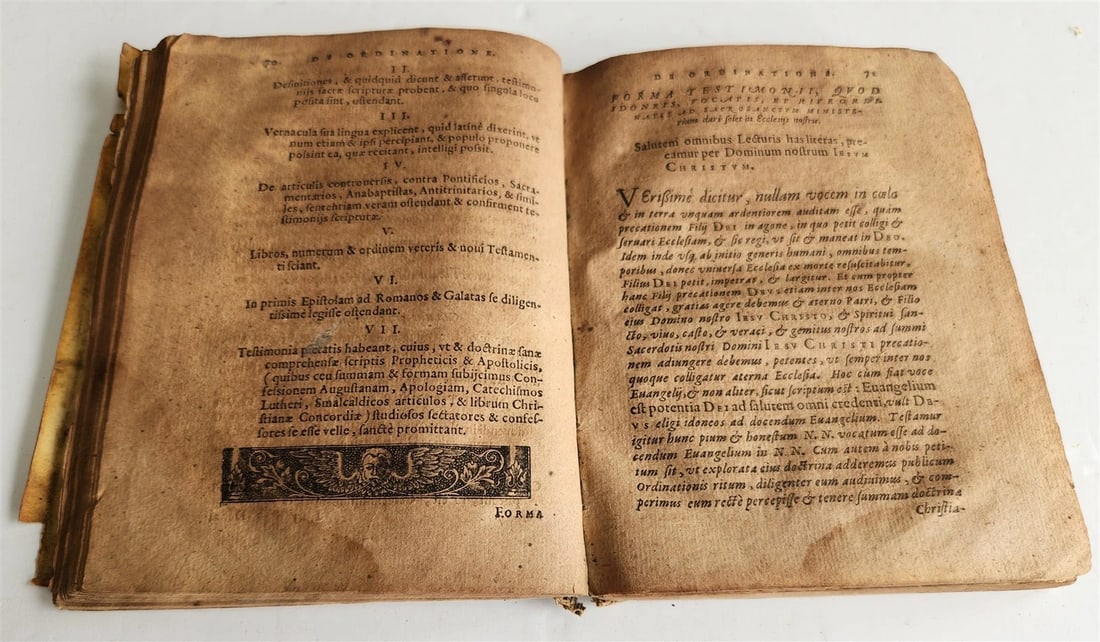 70. DE ORDINATIONE.
II.
Definitiones, & quidquid dicunt & asserunt, testimo-
nijs sacræ scripturæ probent, & quo singula loco
posita sint, ostendant.
III.
Vernacula sua lingua explicent, quid latinè dixerint, vt
num etiam & ipsi percipiant, & populo proponere
possint ea, quæ recitant, intelligi possit.
IV.
De articulis controuersis, contra Pontificios, Sacra-
mentarios, Anabaptistas, Antitrinitarios, & simi-
les, sententiam veram ostendant & confirment te-
stimonijs scripturæ.
V.
Libros, numerum & ordinem veteris & noui Testamen-
ti sciant.
VI.
In primis Epistolam ad Romanos & Galatas se diligen-
tissimè legisse ostendant.
VII.
Testimonia pietatis habeant, cuius, vt & doctrinæ sanæ
comprehensæ scriptis Propheticis & Apostolicis,
(quibus ceu summam & formam subijcimus Con-
fessionem Augustanam, Apologiam, Catechismos
Lutheri, Smalcaldicos articulos, & librum Chri-
stianæ Concordiæ) studiosos sectatores & confes-
sores se esse velle, sanctè promittant.
FORMA
DE ORDINATIONE. 71
FORMA TESTIMONII, QVOD
IDONEIS, VOCATIS, ET RITE ORDI-
NATIS AD SACROSANCTVM MINISTE-
rium dari solet in Ecclesijs nostris.
Salutem omnibus Lecturis has literas, pre-
camur per Dominum nostrum IESVM
CHRISTVM.
VErissimè dicitur, nullam vocem in cœlo
& in terra vnquam ardentiorem auditam esse, quàm
precationem Filij DEI in agone, in quo petit colligi &
seruari Ecclesiam, & sic regi, vt sit & maneat in DEO.
Idem inde vsq; ab initio generis humani, omnibus tem-
poribus, donec vniuersa Ecclesia ex morte resuscitabitur,
Filius DEI petit, impetrat, & largitur. Et cum propter
hanc Filij precationem DEVS etiam inter nos Ecclesiam
colligat, gratias agere debemus & æterno Patri, & Filio
eius Domino nostro IESV CHRISTO, & Spiritui san-
cto, viuo, casto, & veraci, & gemitus nostros ad summi
Sacerdotis nostri Domini IESV CHRISTI precatio-
nem adiungere debemus, petentes, vt semper inter nos
quoque colligatur æterna Ecclesia. Hoc cum fiat voce
Euangelij, & non aliter, sicut scriptum est: Euangelium
est potentia DEI ad salutem omni credenti, vult DE-
VS eligi idoneos ad docendum Euangelium. Testamur
igitur hunc pium & honestum N. N. vocatum esse ad do-
cendum Euangelium in N. N. Cum autem à nobis peti-
tum sit, vt explorata eius doctrina adderemus publicum
Ordinationis ritum, diligenter eum audiuimus, & com-
perimus eum rectè percepisse & tenere summam doctrinæ
Christia-